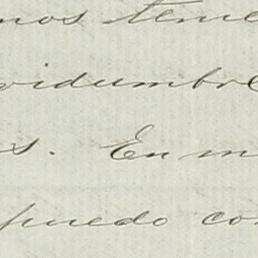 nos tene
vidumbre
s. En m
puedo con